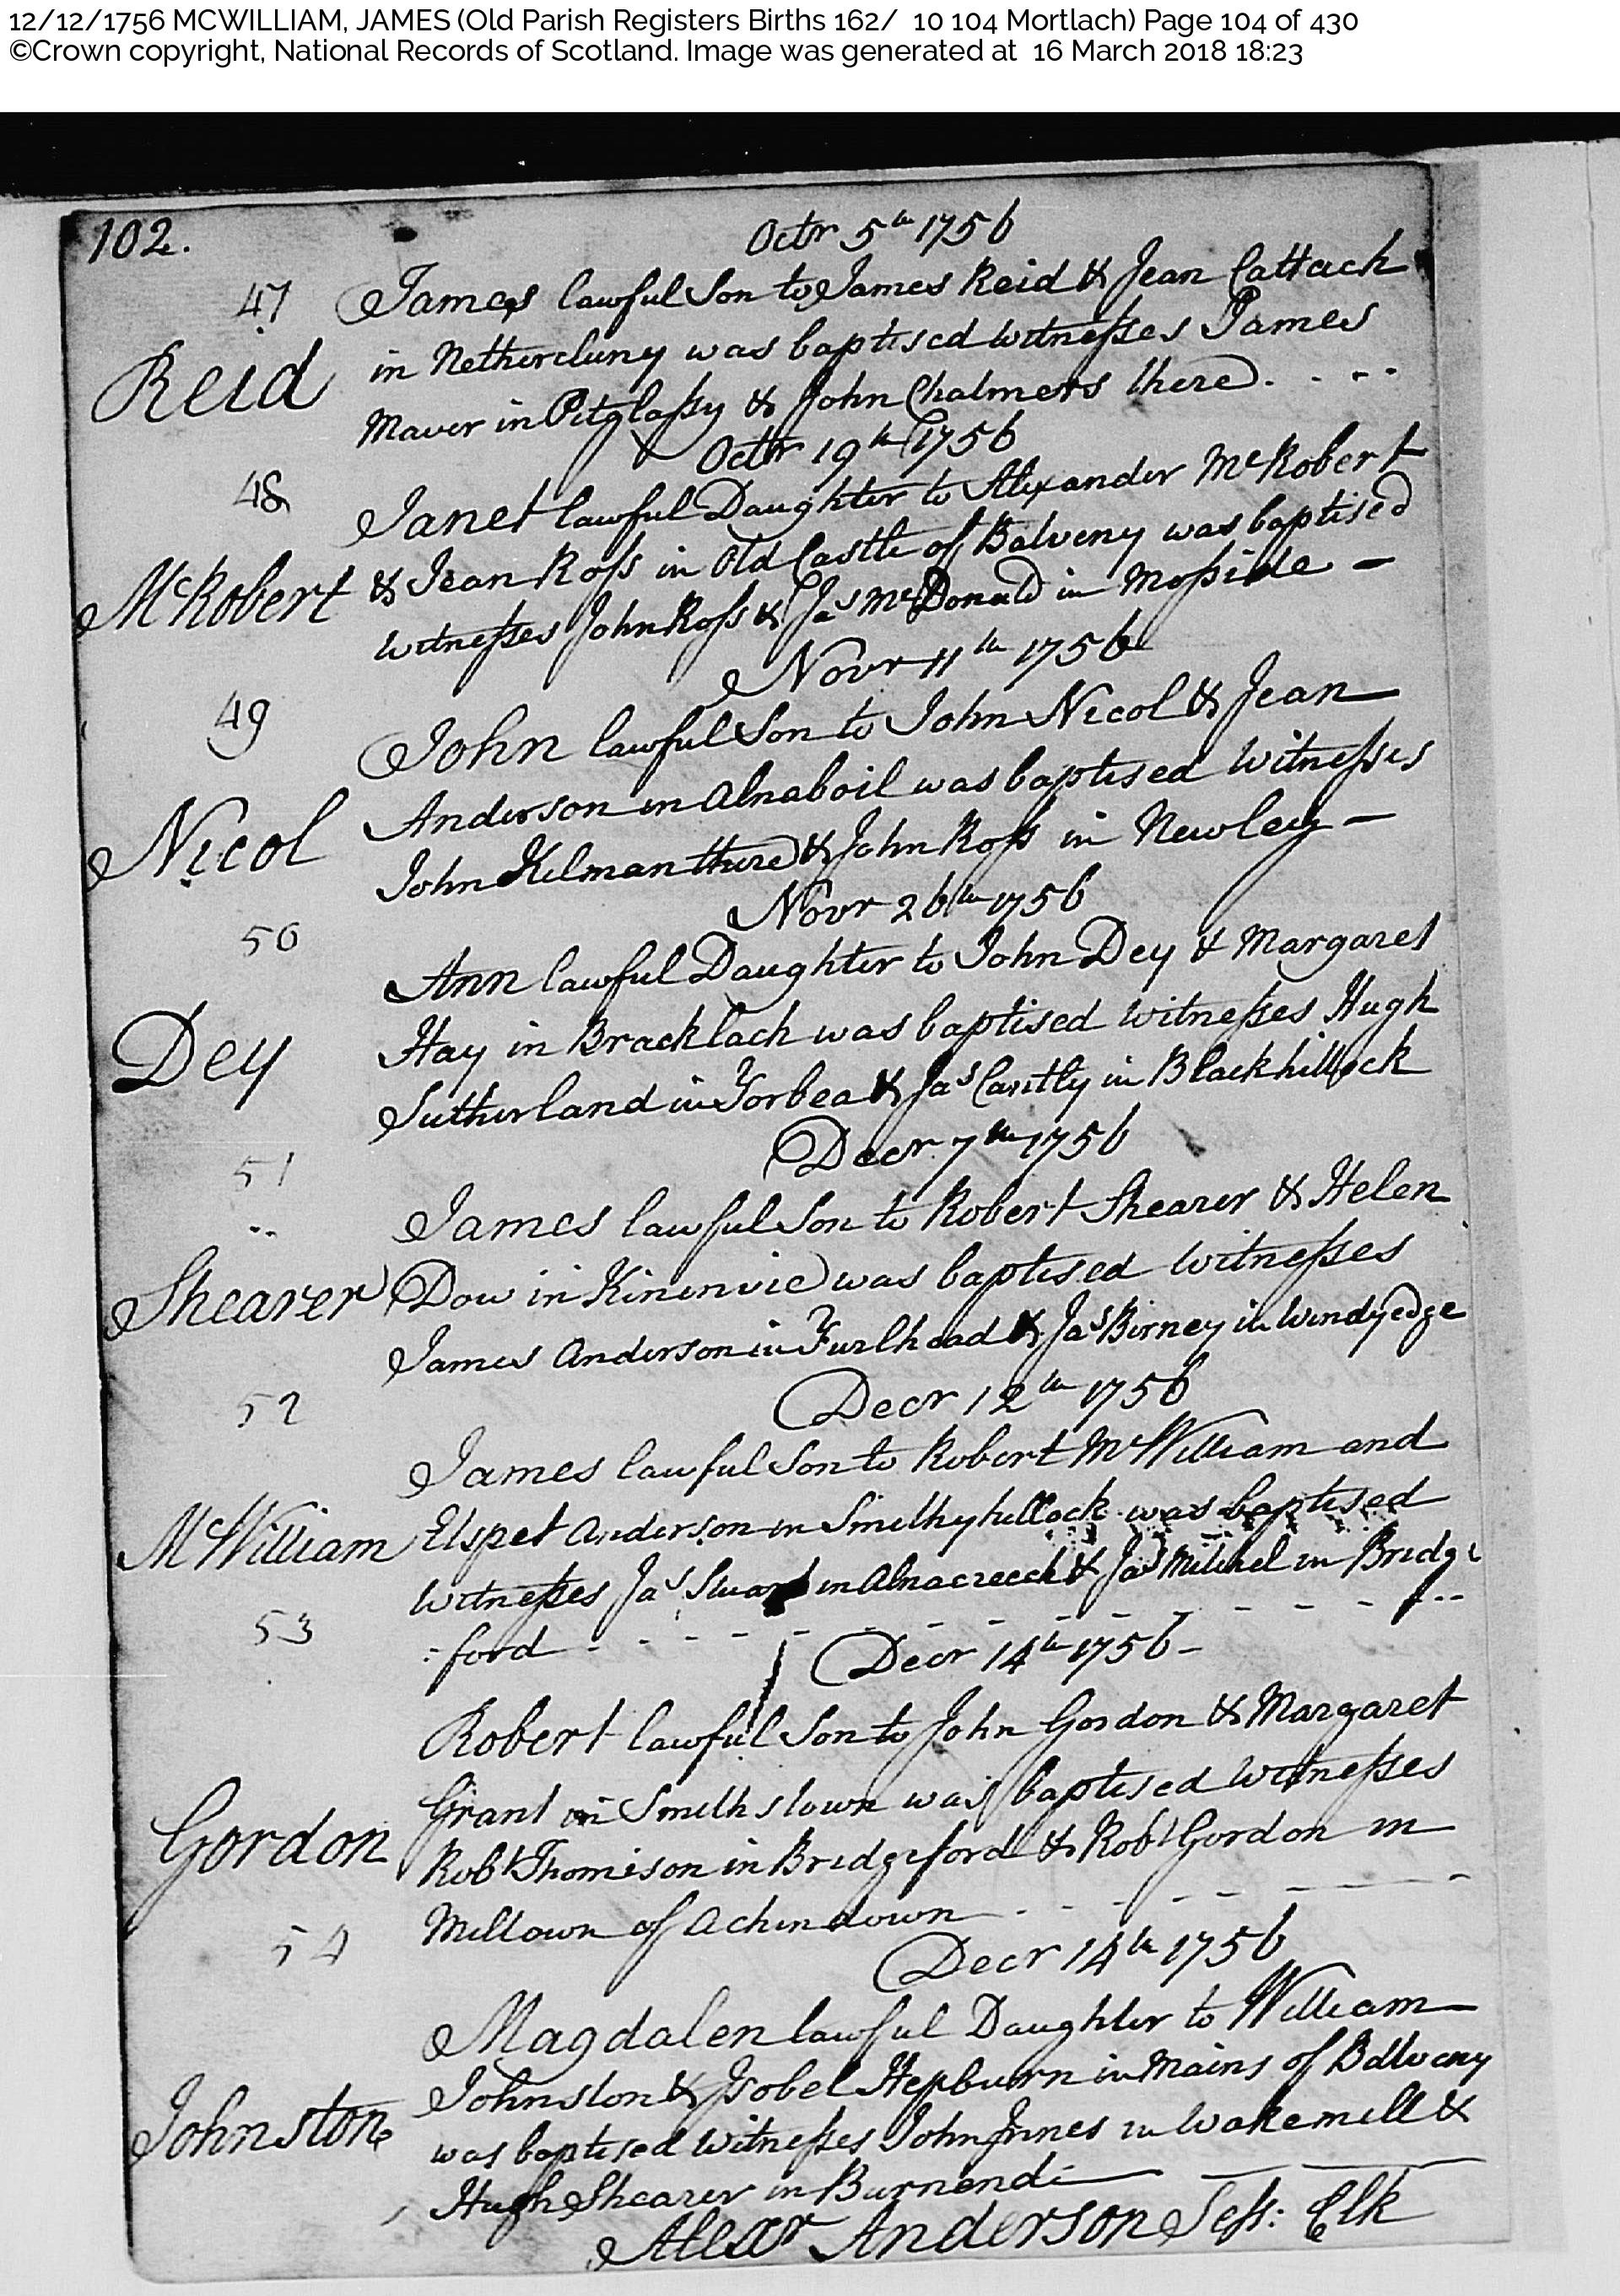 12/12/1756 MCWILLIAM, JAMES (Old Parish Registers Births 162/ 10 104 Mortlach) Page 104 of 430
©Crown copyright, National Records of Scotland. Image was generated at 16 March 2018 18:23
102.
Octr 5th 1756
47
James lawful Son to James Reid & Jean Cattach
Reid
in Nethercluny was baptised witnesses James
Maver in Pitglassy & John Chalmers there
Octr 19th 1756
48
Janet lawful Daughter to Alexander McRobert
McRobert
& Jean Ross in Old Castle of Balveny was baptised
witnesses John Ross & Jas McDonald in Mosside
Novr 11th 1756
49
John lawful Son to John Nicol & Jean
Nicol
Anderson in Alnaboil was baptised witnesses
John Kelman there & John Ross in Newley
Novr 26th 1756
50
Ann lawful Daughter to John Dey & Margaret
Dey
Hay in Bracklach was baptised witnesses Hugh
Sutherland in Torbea & Jas Cantly in Blackhillock
Decr 7th 1756
51
James lawful Son to Robert Shearer & Helen
Shearer
Dow in Kininvie was baptised witnesses
James Anderson in Furlhead & Jas Birney in Windyedge
Decr 12th 1756
52
James lawful Son to Robert McWilliam and
McWilliam
Elspet Anderson in Smithyhillock was baptised
witnesses Jas Stuart in Alnacreech & Jas Mitchel in Bridge
53
ford
Decr 14th 1756
Robert lawful Son to John Gordon & Margaret
Gordon
Grant in Smithstown was baptised witnesses
Robt Thomson in Bridgeford & Robt Gordon in
Milltown of Achindown
54
Decr 14th 1756
Magdalen lawful Daughter to William
Johnston
Johnston & Isobel Hepburn in Mains of Balveny
was baptised witnesses John Innes in Wakemill &
Hugh Shearer in Burnend
Alexr Anderson Sess: Clk